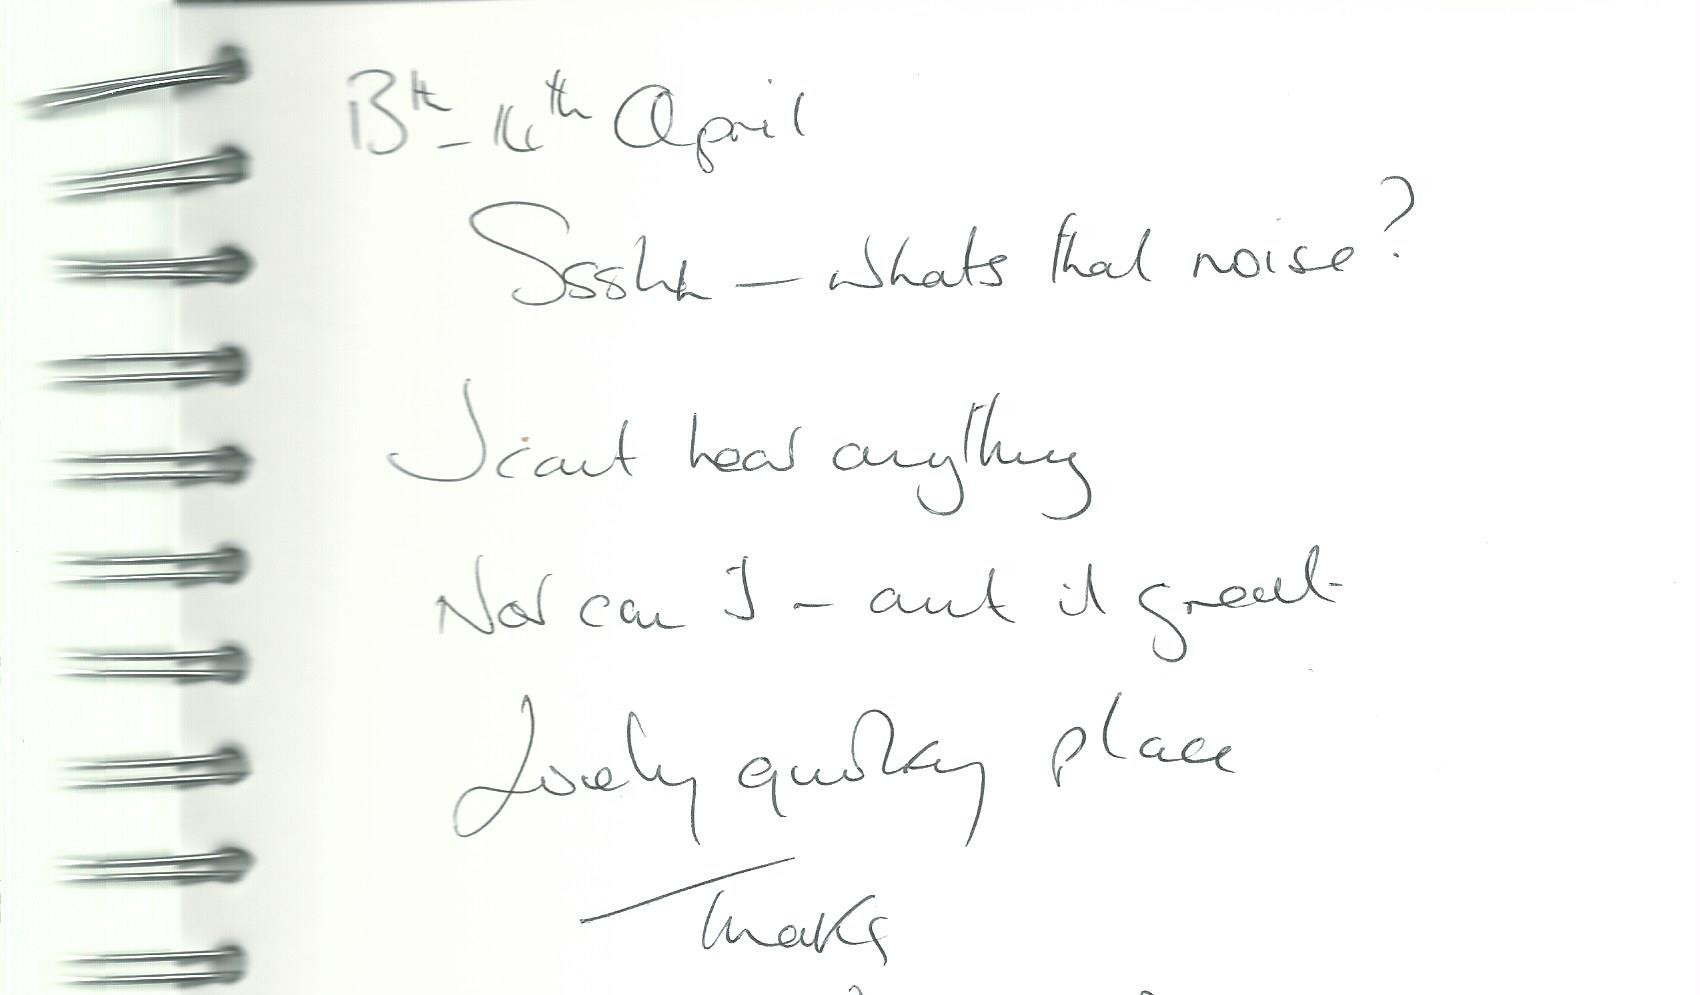 13th - 16th April
Ssshh - whats that noise?
I cant hear anything
Nor can I - ant it great
Lovely quirky place
Thanks